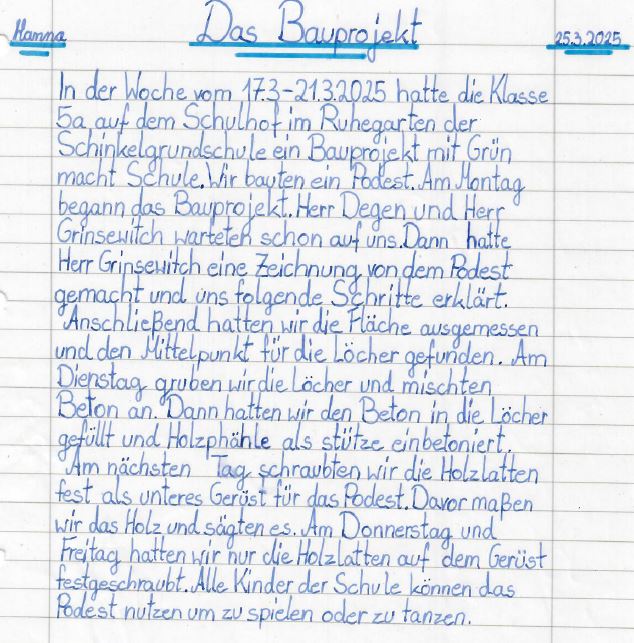 Hanna Das Bauprojekt 25.3.2025
In der Woche vom 17.3-21.3.2025 hatte die Klasse
5a auf dem Schulhof im Ruhegarten der
Schinkelgrundschule ein Bauprojekt mit Grün
macht Schule. Wir bauten ein Podest. Am Montag
begann das Bauprojekt. Herr Degen und Herr
Grinsewitch warteten schon auf uns. Dann hatte
Herr Grinsewitch eine Zeichnung von dem Podest
gemacht und uns folgende Schritte erklärt.
Anschließend hatten wir die Fläche ausgemessen
und den Mittelpunkt für die Löcher gefunden. Am
Dienstag gruben wir die Löcher und mischten
Beton an. Dann hatten wir den Beton in die Löcher
gefüllt und Holzphähle als stütze einbetoniert.
Am nächsten Tag schraubten wir die Holzlatten
fest als unteres Gerüst für das Podest. Davor maßen
wir das Holz und sägten es. Am Donnerstag und
Freitag hatten wir nur die Holzlatten auf dem Gerüst
festgeschraubt. Alle Kinder der Schule können das
Podest nutzen um zu spielen oder zu tanzen.